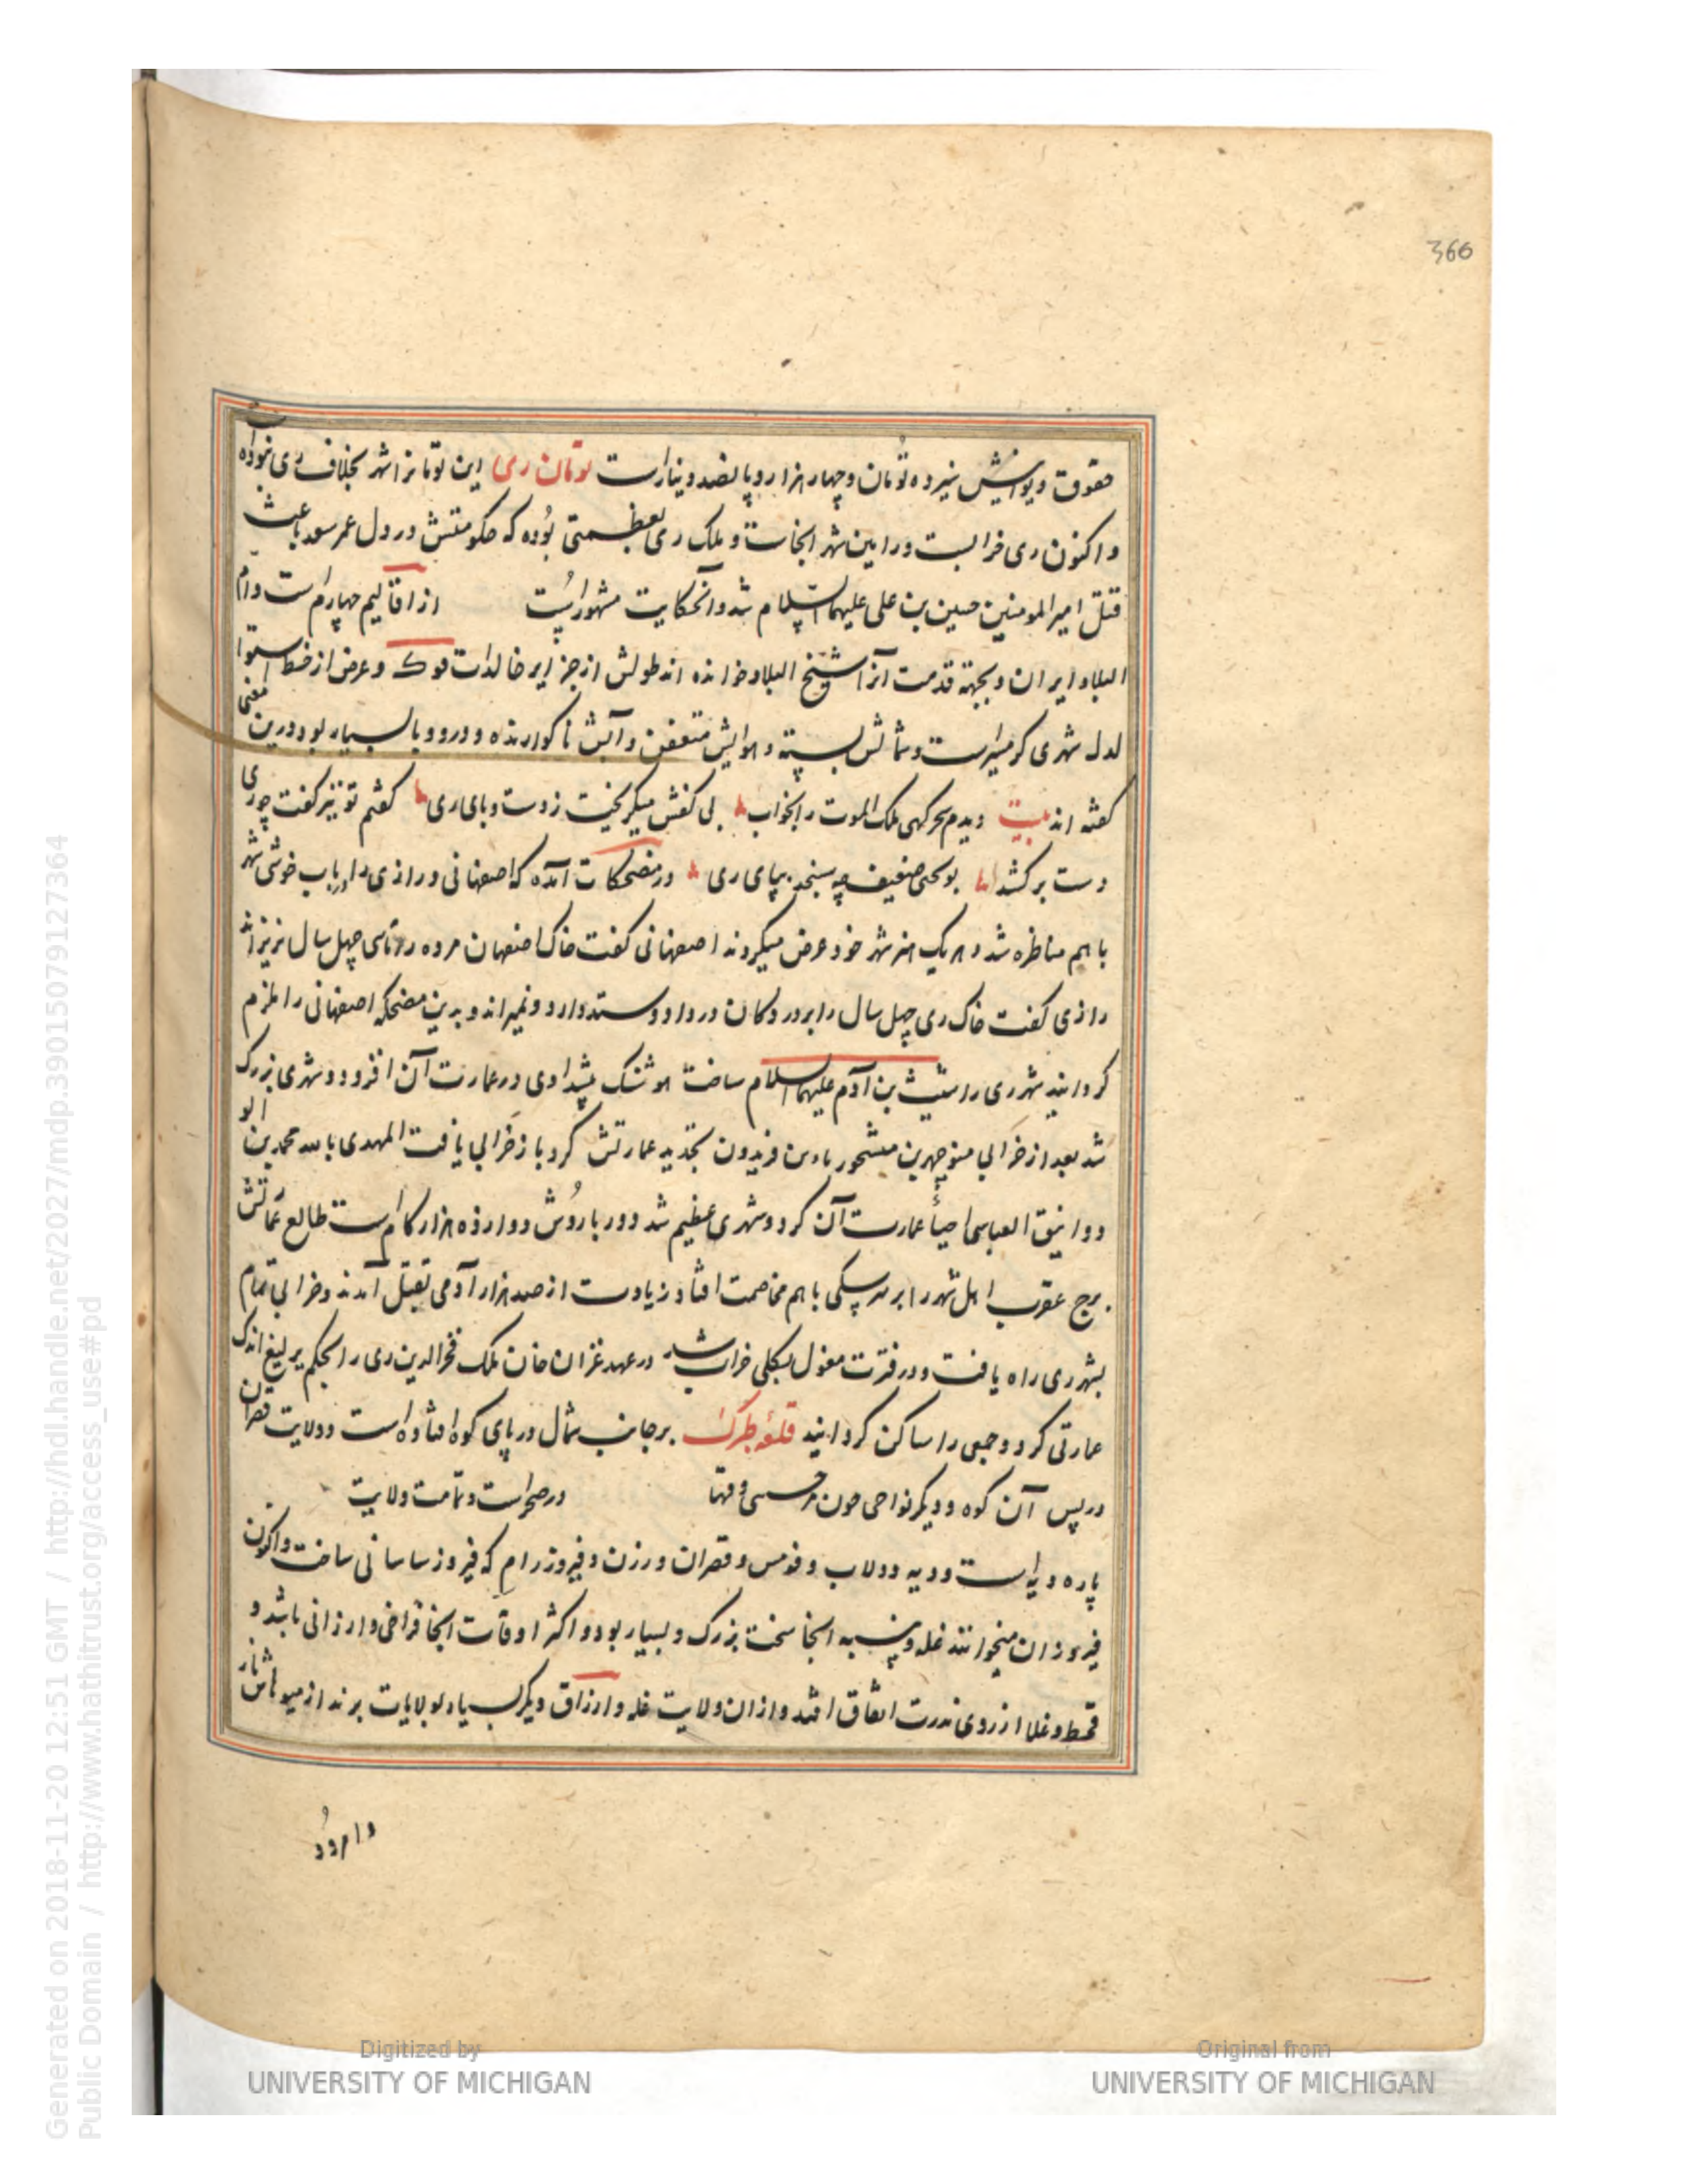 366
حقوق دیوانیش سیزده تومان و چهار هزار و پانصد دینارست تومان ری این تومانرا شهر بخلاف ری نبوده است
و اکنون ری خرابست ورامین شهر انجاست و ملک ری بعظمتی بوده که حکومتش در دل عمر سعد باعث
قتل امیر المومنین حسین بن علی علیهما السلام شد و آنحکایت مشهور است از اقالیم چهارم است و ام
البلاد ایران و بجهة قدمت آنرا شیخ البلاد خوانده اند طولش از جزایر خالدات فوک و عرض از خط استوا
لدل شهری گرمسیرست و شمالش بسته و هوایش متعفن و آبش ناگوارنده و درو وبا بسیار بود درین معنی
گفته اند بیت دیدم سحرگهی ملک الموت را بخواب بی کفش میگریخت ز دست وبای ری گفتم تو نیز گفت چو ری
دست برکشد بو یحیی ضعیف چه سنجد بپای ری در مضحکات آمده که اصفهانی و رازی را در باب خوشی شهر
با هم مناظره شد و هر یک هنر شهر خود عرض میکردند اصفهانی گفت خاک اصفهان مرده را تا سی چهل سال نریزاند
رازی گفت خاک ری چهل سال را بر در دکان در داد و ستد دارد و نمیراند و بدین مضحکه اصفهانی را ملزم
گردانید شهر ری را شیث بن آدم علیهما السلام ساخت هوشنک پیشدادی در عمارت آن افزود و شهری بزرک
شد بعد از خرابی منوچهر بن میشخور بن فریدون تجدید عمارتش کرد باز خرابی یافت المهدی بالله محمد بن ابو
دوانیق العباسی احیاء عمارت آن کرد و شهری عظیم شد دور باروش دوازده هزار کام است طالع عمارتش
برج عقرب اهل شهر را بر سر سکی با هم مخاصمت افتاد زیادت از صد هزار آدمی بقتل آمدند و خرابی تمام
بشهر ری راه یافت و در فترت مغول بکلی خراب شد در عهد غزان خان ملک فخر الدین ری را بحکم یرلیغ اندک
عمارتی کرد و جمعی را ساکن گردانید قلعه طبرک بر جانب شمال در پای کوه افتاده است و ولایت قصران
در پس آن کوه و دیگر نواحی چون مرحسی و قها در صحراست و تمامت ولایت
پاره دیه است و دیه دولاب و قومس و قصران و رزن و فیروز رام که فیروز ساسانی ساخت و اکنون
فیروزان میخوانند غله و پنبه انجا سخت بزرک و بسیار بود و اکثر اوقات انجا فراخی و ارزانی باشد و
قحط و غلا از روی ندرت اتفاق افتد و از ان ولایت غله و ارزاق دیگر بسیار بولایات برند از میوهاش نار
و امرود
Digitized by
UNIVERSITY OF MICHIGAN
Original from
UNIVERSITY OF MICHIGAN
Generated on 2018-11-20 12:51 GMT / http://hdl.handle.net/2027/mdp.39015079127364
Public Domain / http://www.hathitrust.org/access_use#pd